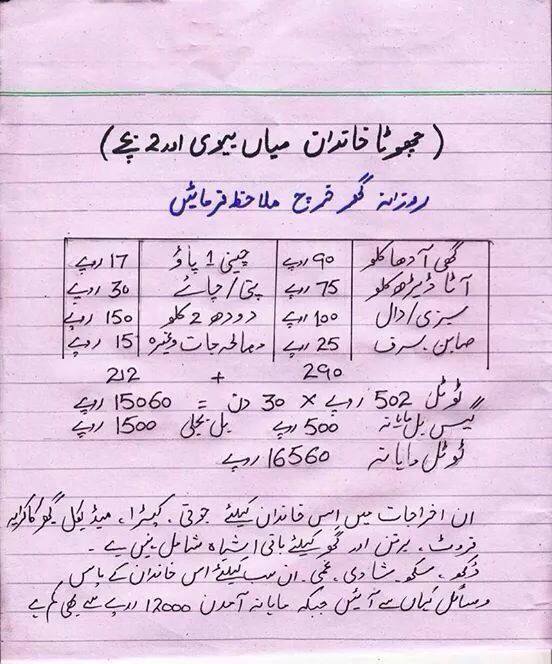 (چھوٹا خاندان میاں بیوی اور 2 بچے)
روزانہ گھر خرچ ملاحظہ فرمائیں
گھی آدھا کلو 90 روپے چینی 1 پاؤ 17 روپے
آٹا ڈیڑھ کلو 75 روپے پتی/چائے 30 روپے
سبزی/دال 100 روپے دودھ 2 کلو 150 روپے
صابن۔سرف 25 روپے مصالحہ جات وغیرہ 15 روپے
290 + 212
ٹوٹل 502 روپے × 30 دن = 15060 روپے
گیس بل ماہانہ 500 روپے بل بجلی 1500 روپے
ٹوٹل ماہانہ 16560 روپے
ان اخراجات میں اس خاندان کیلئے جوتی، کپڑا، میڈیکل گھر کا کرایہ
فروٹ، برتن اور گھر کیلئے باقی اشیاء شامل نہیں ہے۔
دُکھ، سکھ شادی، غمی۔ ان سب کیلئے اس خاندان کے پاس
وسائل کہاں سے آئیں جبکہ ماہانہ آمدن 12000 روپے سے بھی کم ہے